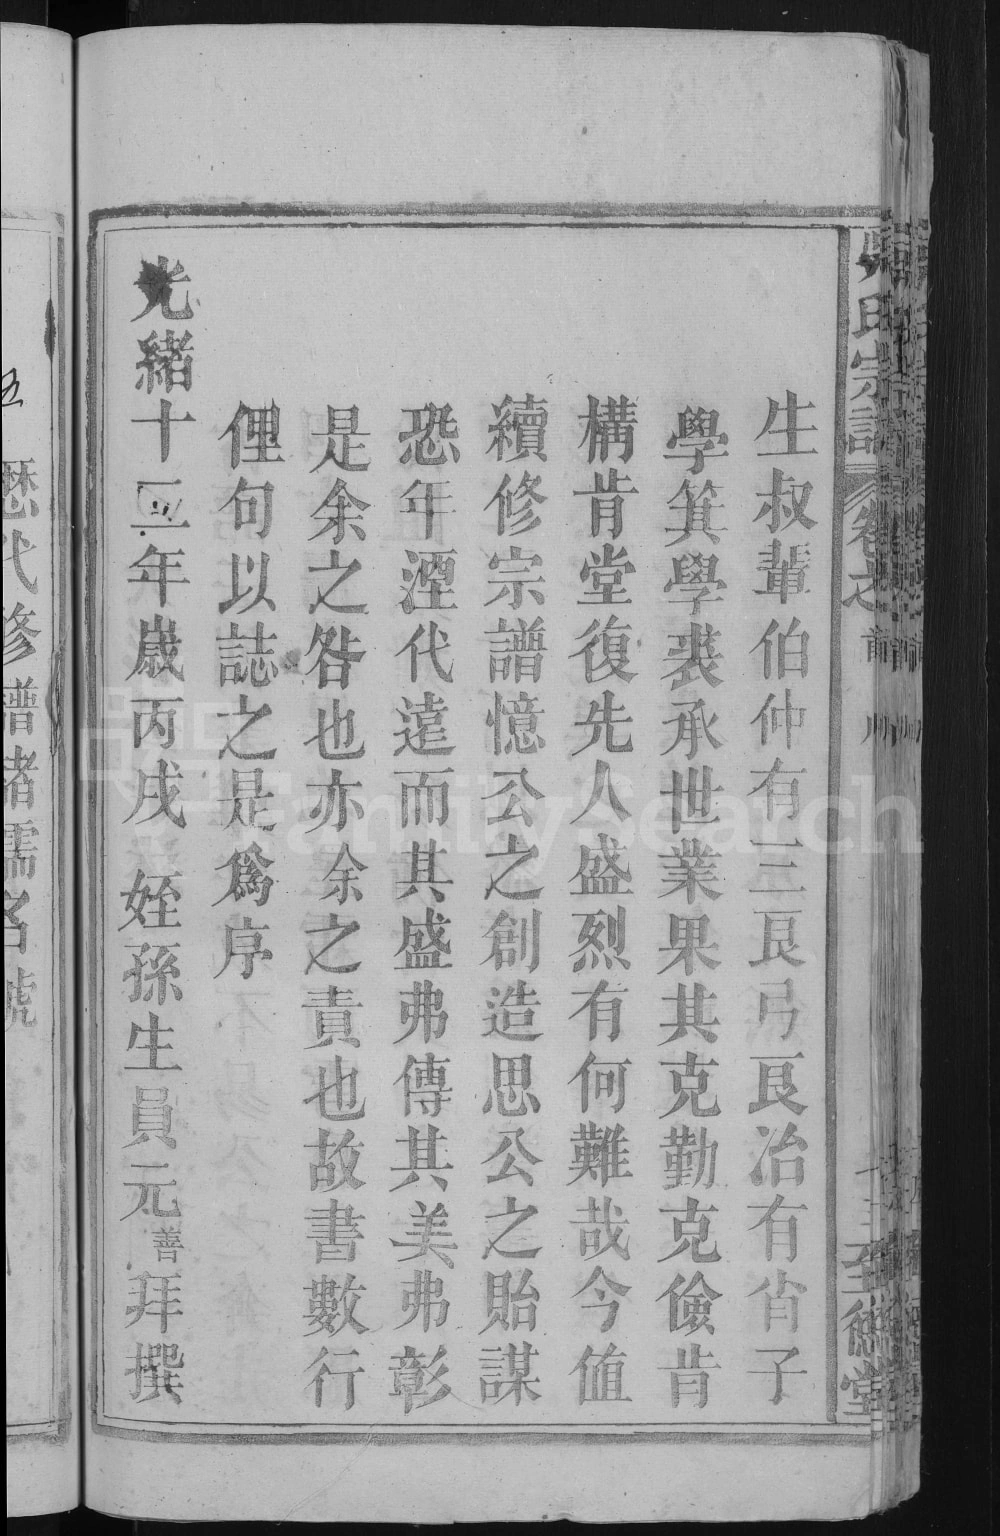 吳氏宗譜 卷之首 十三 至德堂
生叔輩伯仲有三艮弓艮治有肖子
學箕學裘承世業果其克勤克儉肯
構肯堂復先人盛烈有何難哉今值
續修宗譜憶公之創造思公之貽謀
恐年湮代遠而其盛弗傳其美弗彰
是余之咎也亦余之責也故書數行
俚句以誌之是爲序
光緒十二年歲丙戌 姪孫生員元善拜撰
歷代修譜諸儒名號
FamilySearch